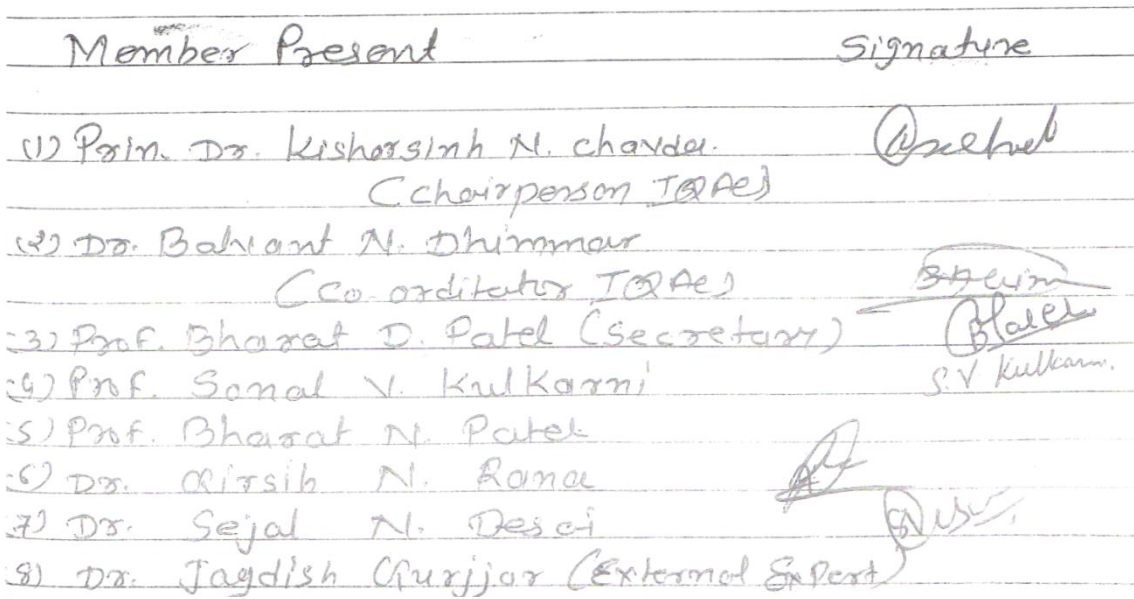 Member Present Signature
(1) Prin. Dr. Kishorsinh N. Chavda.
(Chairperson IQAC)
(2) Dr. Balvant N. Dhimmar
(Co-orditator IQAC)
3) Prof. Bharat D. Patel (Secretary)
4) Prof. Sonal V. Kulkarni S.V Kulkarni.
5) Prof. Bharat N. Patel
6) Dr. N. Rana
7) Dr. Sejal N. Desai
8) Dr. Jagdish Gurjjar (External Expert)